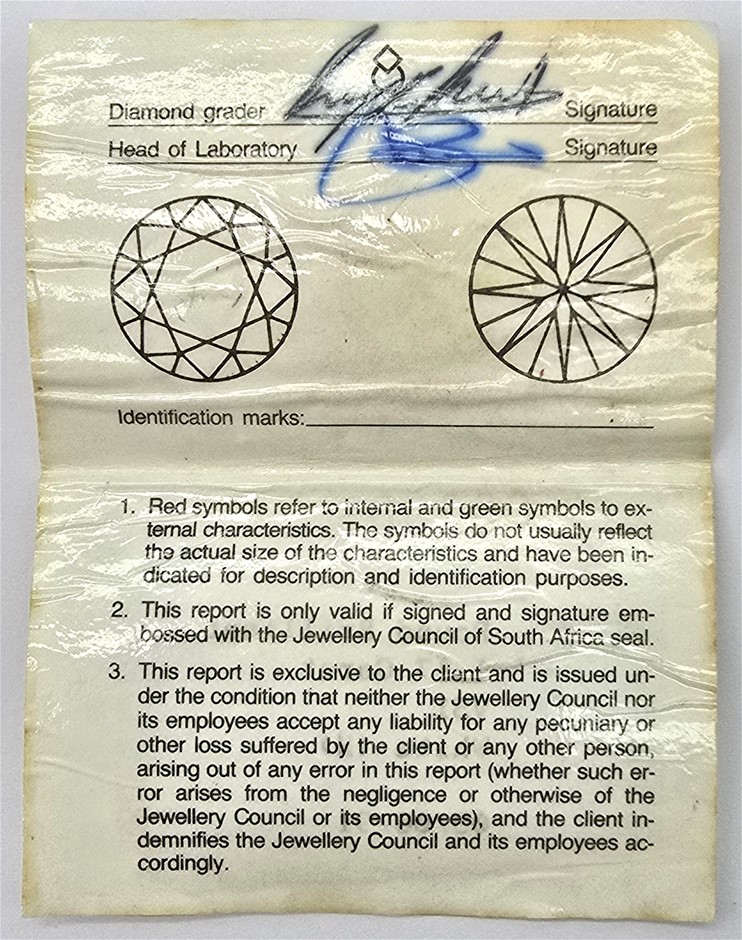 Diamond grader Signature
Head of Laboratory Signature
Identification marks:
1. Red symbols refer to internal and green symbols to ex-
ternal characteristics. The symbols do not usually reflect
the actual size of the characteristics and have been in-
dicated for description and identification purposes.
2. This report is only valid if signed and signature em-
bossed with the Jewellery Council of South Africa seal.
3. This report is exclusive to the client and is issued un-
der the condition that neither the Jewellery Council nor
its employees accept any liability for any pecuniary or
other loss suffered by the client or any other person,
arising out of any error in this report (whether such er-
ror arises from the negligence or otherwise of the
Jewellery Council or its employees), and the client in-
demnifies the Jewellery Council and its employees ac-
cordingly.